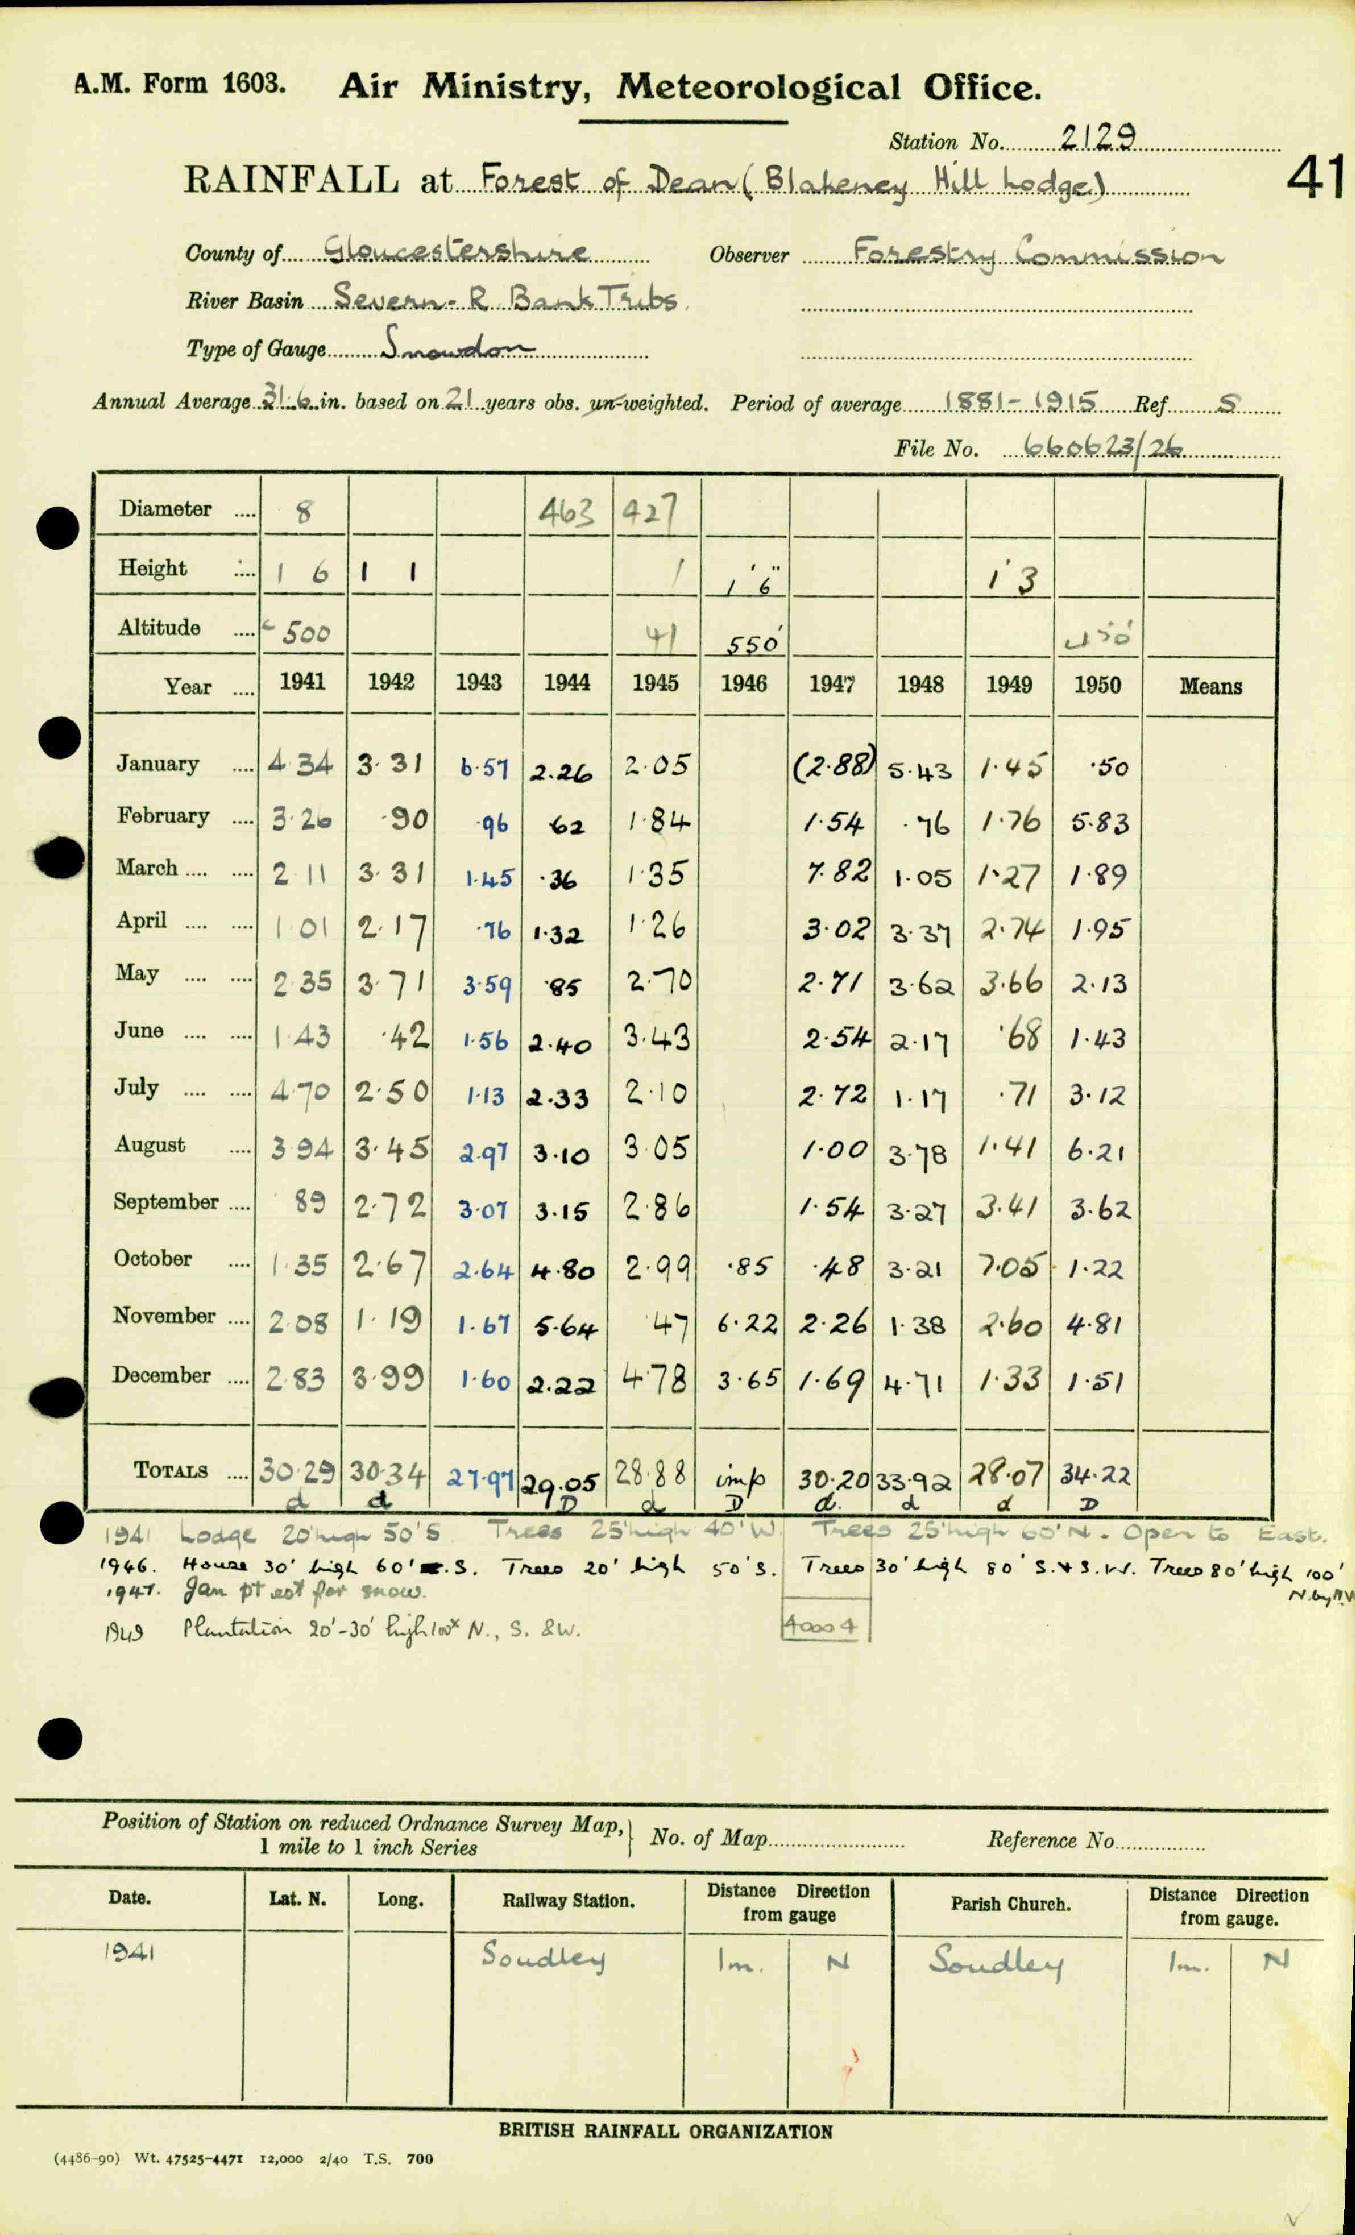 A.M. Form 1603. Air Ministry, Meteorological Office.
Station No. 2129
41
RAINFALL at Forest of Dean (Blakeney Hill Lodge)
County of Gloucestershire Observer Forestry Commission
River Basin Severn - R Bank Tribs.
Type of Gauge Snowdon
Annual Average 31.6 in. based on 21 years obs. un-weighted. Period of average 1881-1915 Ref S
File No. 660623/26
Diameter .... 8 463 427
Height .... 1 6 1 1 1 1' 6" 1' 3
Altitude .... c 500 41 550' 450'
Year .... 1941 1942 1943 1944 1945 1946 1947 1948 1949 1950 Means
January .... 4.34 3.31 6.57 2.26 2.05 (2.88) 5.43 1.45 .50
February .... 3.26 .90 .96 .62 1.84 1.54 .76 1.76 5.83
March .... .... 2.11 3.31 1.45 .36 1.35 7.82 1.05 1.27 1.89
April .... .... 1.01 2.17 .76 1.32 1.26 3.02 3.37 2.74 1.95
May .... .... 2.35 3.71 3.59 .85 2.70 2.71 3.62 3.66 2.13
June .... .... 1.43 .42 1.56 2.40 3.43 2.54 2.17 .68 1.43
July .... .... 4.70 2.50 1.13 2.33 2.10 2.72 1.17 .71 3.12
August .... 3.94 3.45 2.97 3.10 3.05 1.00 3.78 1.41 6.21
September .... .89 2.72 3.07 3.15 2.86 1.54 3.27 3.41 3.62
October .... 1.35 2.67 2.64 4.80 2.99 .85 .48 3.21 7.05 1.22
November .... 2.08 1.19 1.67 5.64 .47 6.22 2.26 1.38 2.60 4.81
December .... 2.83 3.99 1.60 2.22 4.78 3.65 1.69 4.71 1.33 1.51
TOTALS .... 30.29 30.34 27.97 29.05 28.88 imp 30.20 33.92 28.07 34.22
d d D d D d. d d D
1941 Lodge 20' high 50' S. Trees 25' high 40' W. Trees 25' high 60' N. Open to East.
1946. House 30' high 60' S. Trees 20' high 50' S. Trees 30' high 80' S. & S.W. Trees 80' high 100'
N. by N.W
1947. Jan pt est for snow.
1949 Plantation 20'-30' high 100x N., S. & W.
40004
Position of Station on reduced Ordnance Survey Map, } No. of Map Reference No
1 mile to 1 inch Series
Date. Lat. N. Long. Railway Station. Distance Direction from gauge Parish Church. Distance Direction from gauge.
1941 Soudley 1m. N Soudley 1m. N
BRITISH RAINFALL ORGANIZATION
(4486-90) Wt. 47525-4471 12,000 2/40 T.S. 700